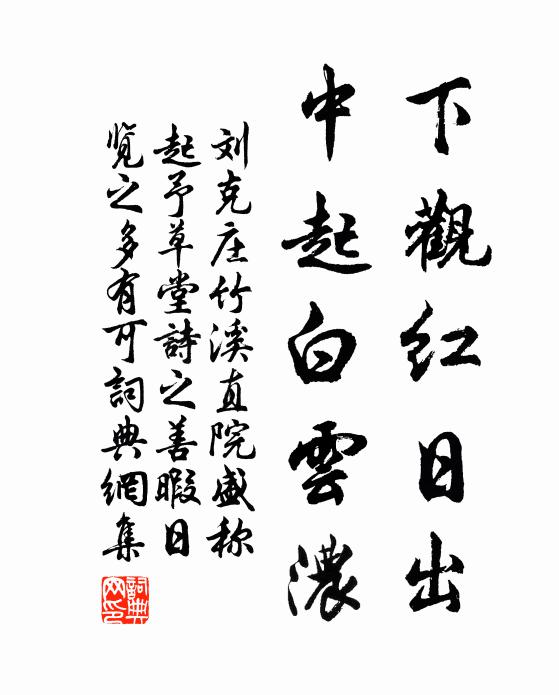 下觀紅日出
中起白雲濃
刘克庄竹溪直院盛称
起予草堂詩之善暇日
览之多有可詞典網集
詞典網印